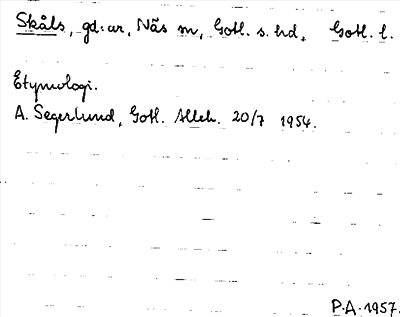 Skåls, gd:ar, Näs sn, Gotl. s. hd, Gotl. l.
Etymologi.
A. Segerlund, Gotl. Alleh. 20/7 1954.
P.A. 1957.